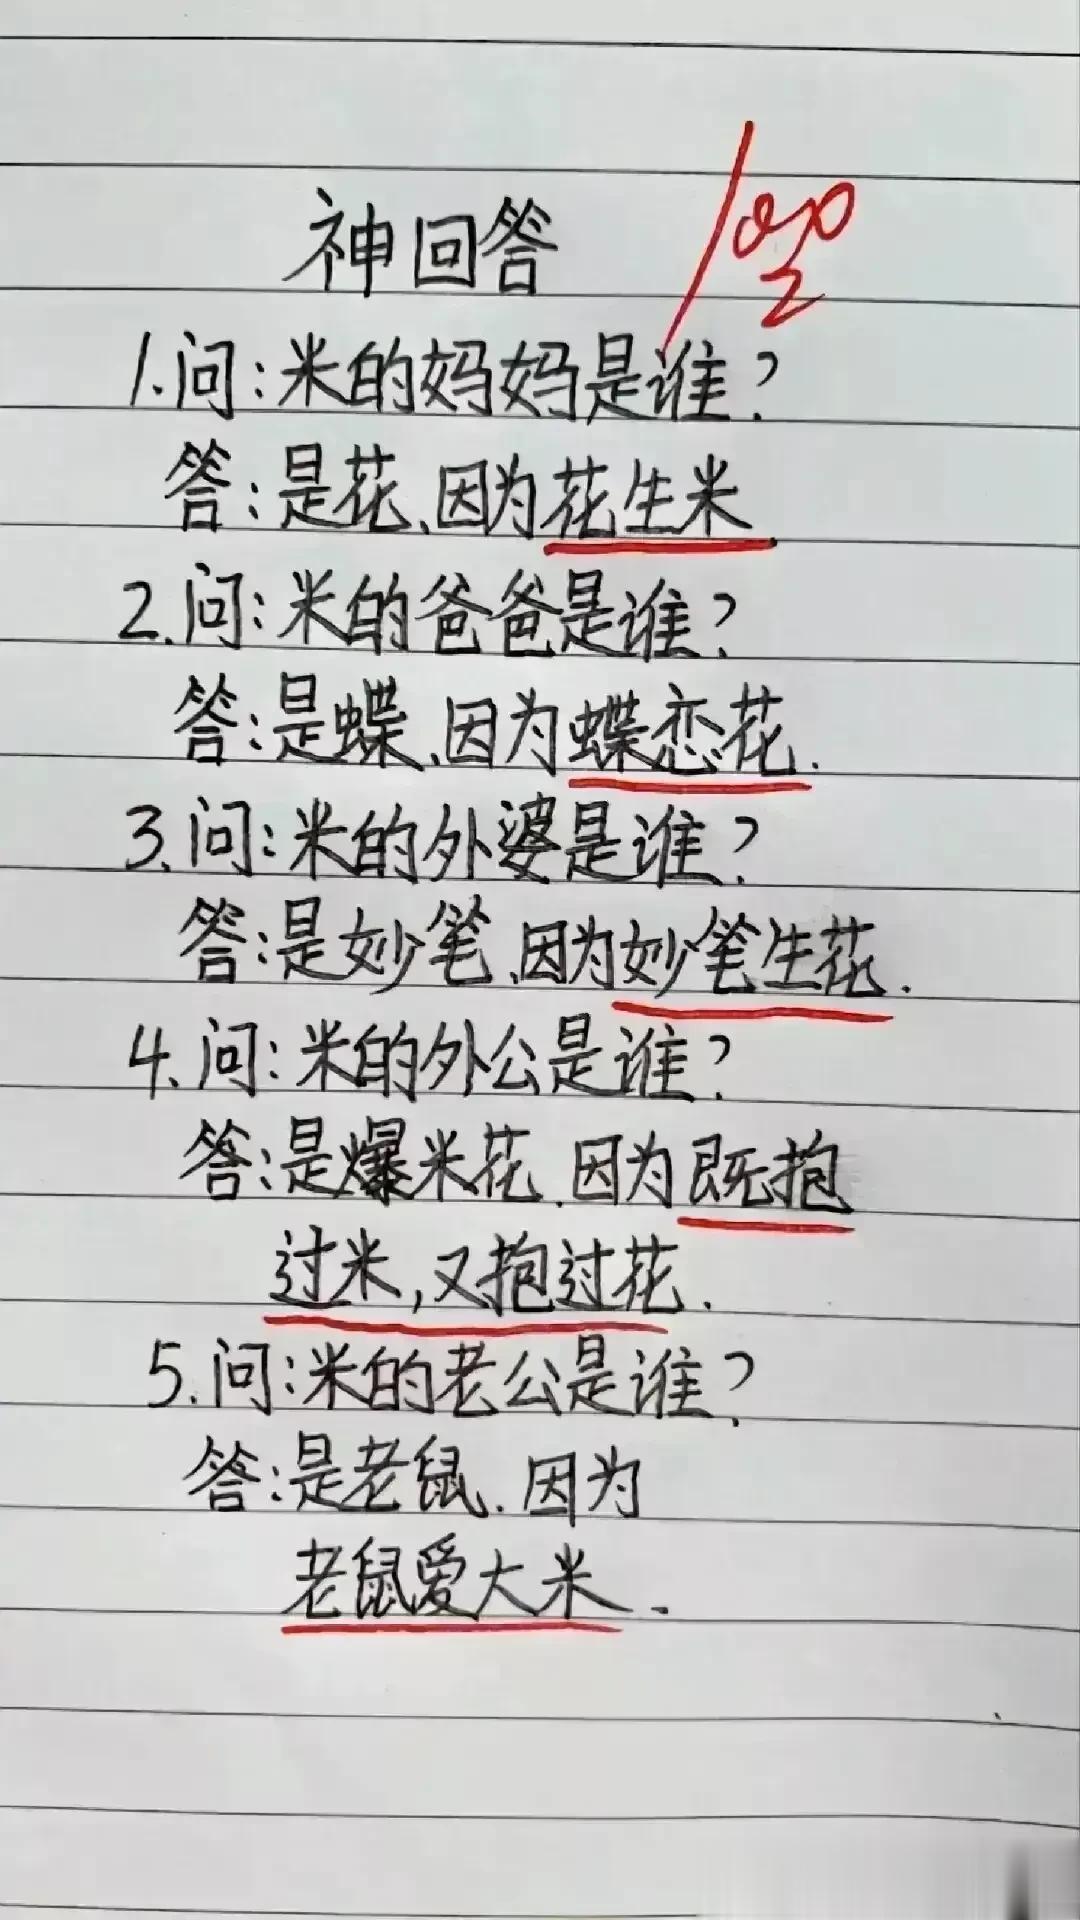 神回答
100
1.问:米的妈妈是谁?
答:是花、因为花生米
2.问:米的爸爸是谁?
答:是蝶、因为蝶恋花.
3.问:米的外婆是谁?
答:是妙笔、因为妙笔生花.
4.问:米的外公是谁?
答:是爆米花.因为既抱
过米,又抱过花.
5.问:米的老公是谁?
答:是老鼠.因为
老鼠爱大米.